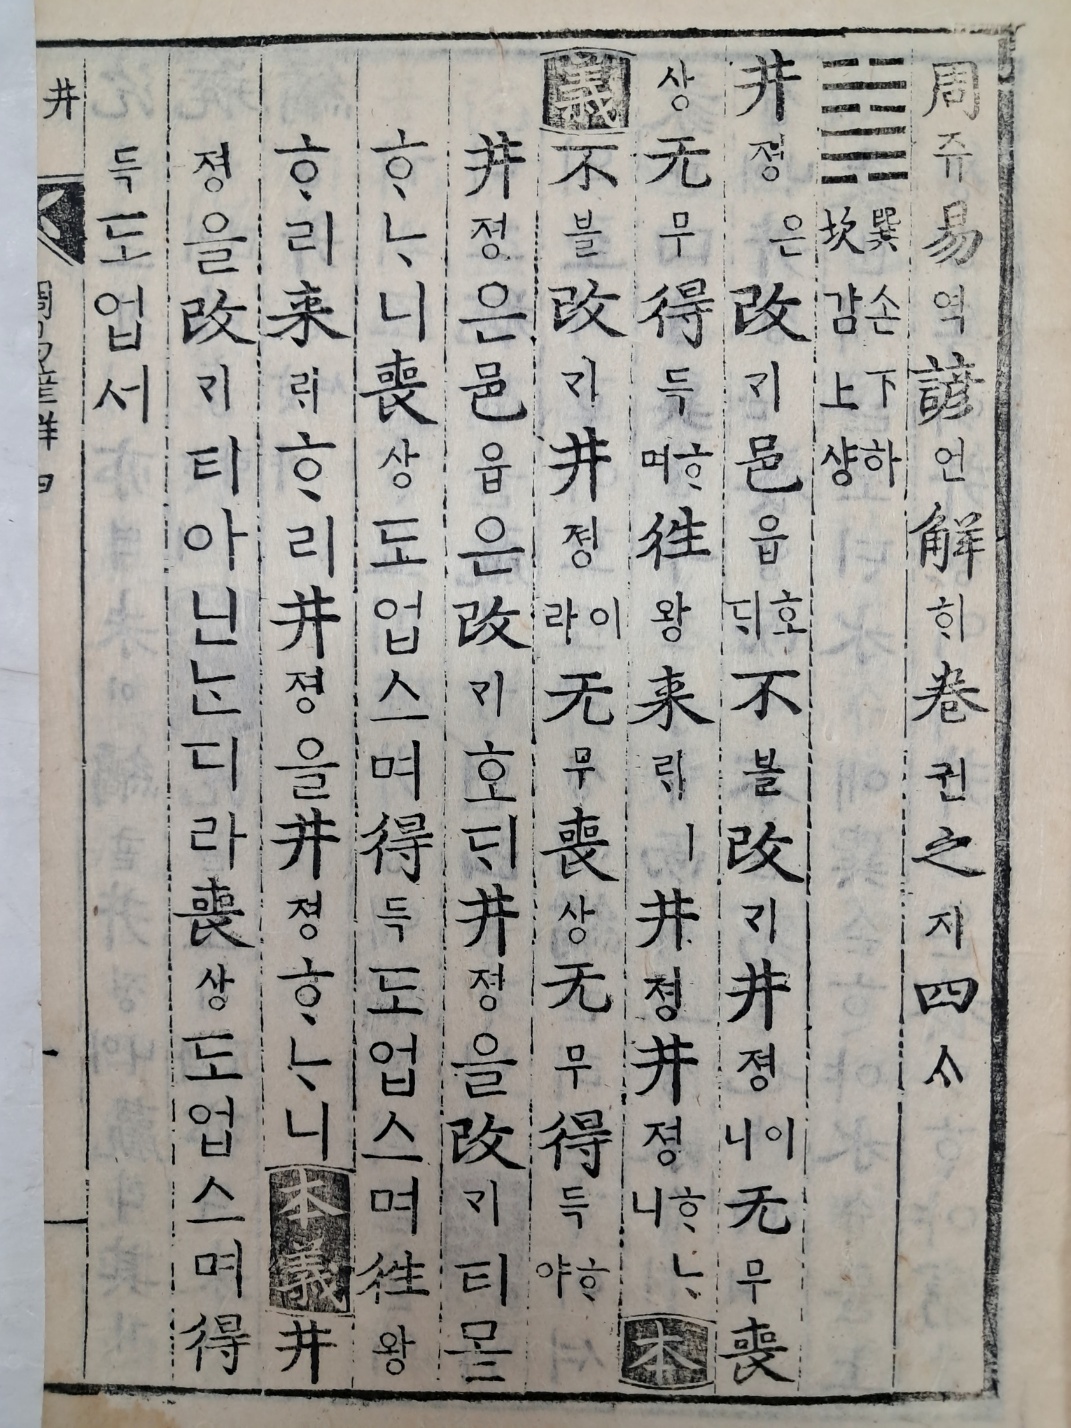 周쥬易역諺언解ᄒᆡ卷권之지四ᄉᆞ
䷯巽손下하坎감上샹
井졍은改ᄀᆡ邑읍호ᄃᆡ不블改ᄀᆡ井졍이니无무喪
상无무得득ᄒᆞ며徃왕来ᄅᆡㅣ井졍井졍ᄒᆞᄂᆞ니本
義不블改ᄀᆡ井졍이라无무喪상无무得득ᄒᆞ야
井졍은邑읍은改ᄀᆡ호ᄃᆡ井졍을改ᄀᆡ티몯
ᄒᆞᄂᆞ니喪상도업스며得득도업스며徃왕
ᄒᆞ리来ᄅᆡᄒᆞ리井졍을井졍ᄒᆞᄂᆞ니本義井
졍을改ᄀᆡ티아닌ᄂᆞᆫ디라喪상도업스며得
득도업서
井